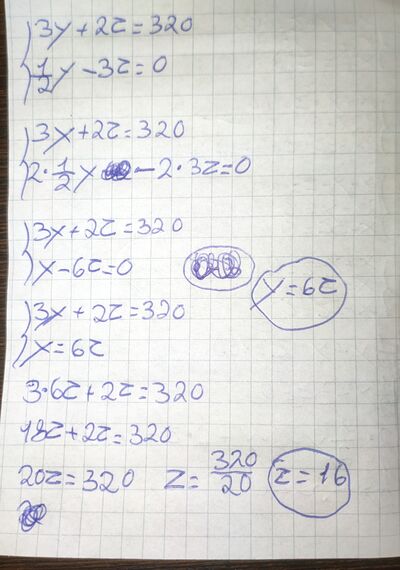 3y + 2z = 320
1/2 y - 3z = 0
3y + 2z = 320
2 · 1/2 y - 2 · 3z = 0
3y + 2z = 320
y - 6z = 0
y = 6z
3y + 2z = 320
y = 6z
3·6z + 2z = 320
18z + 2z = 320
20z = 320 z = 320/20 z = 16